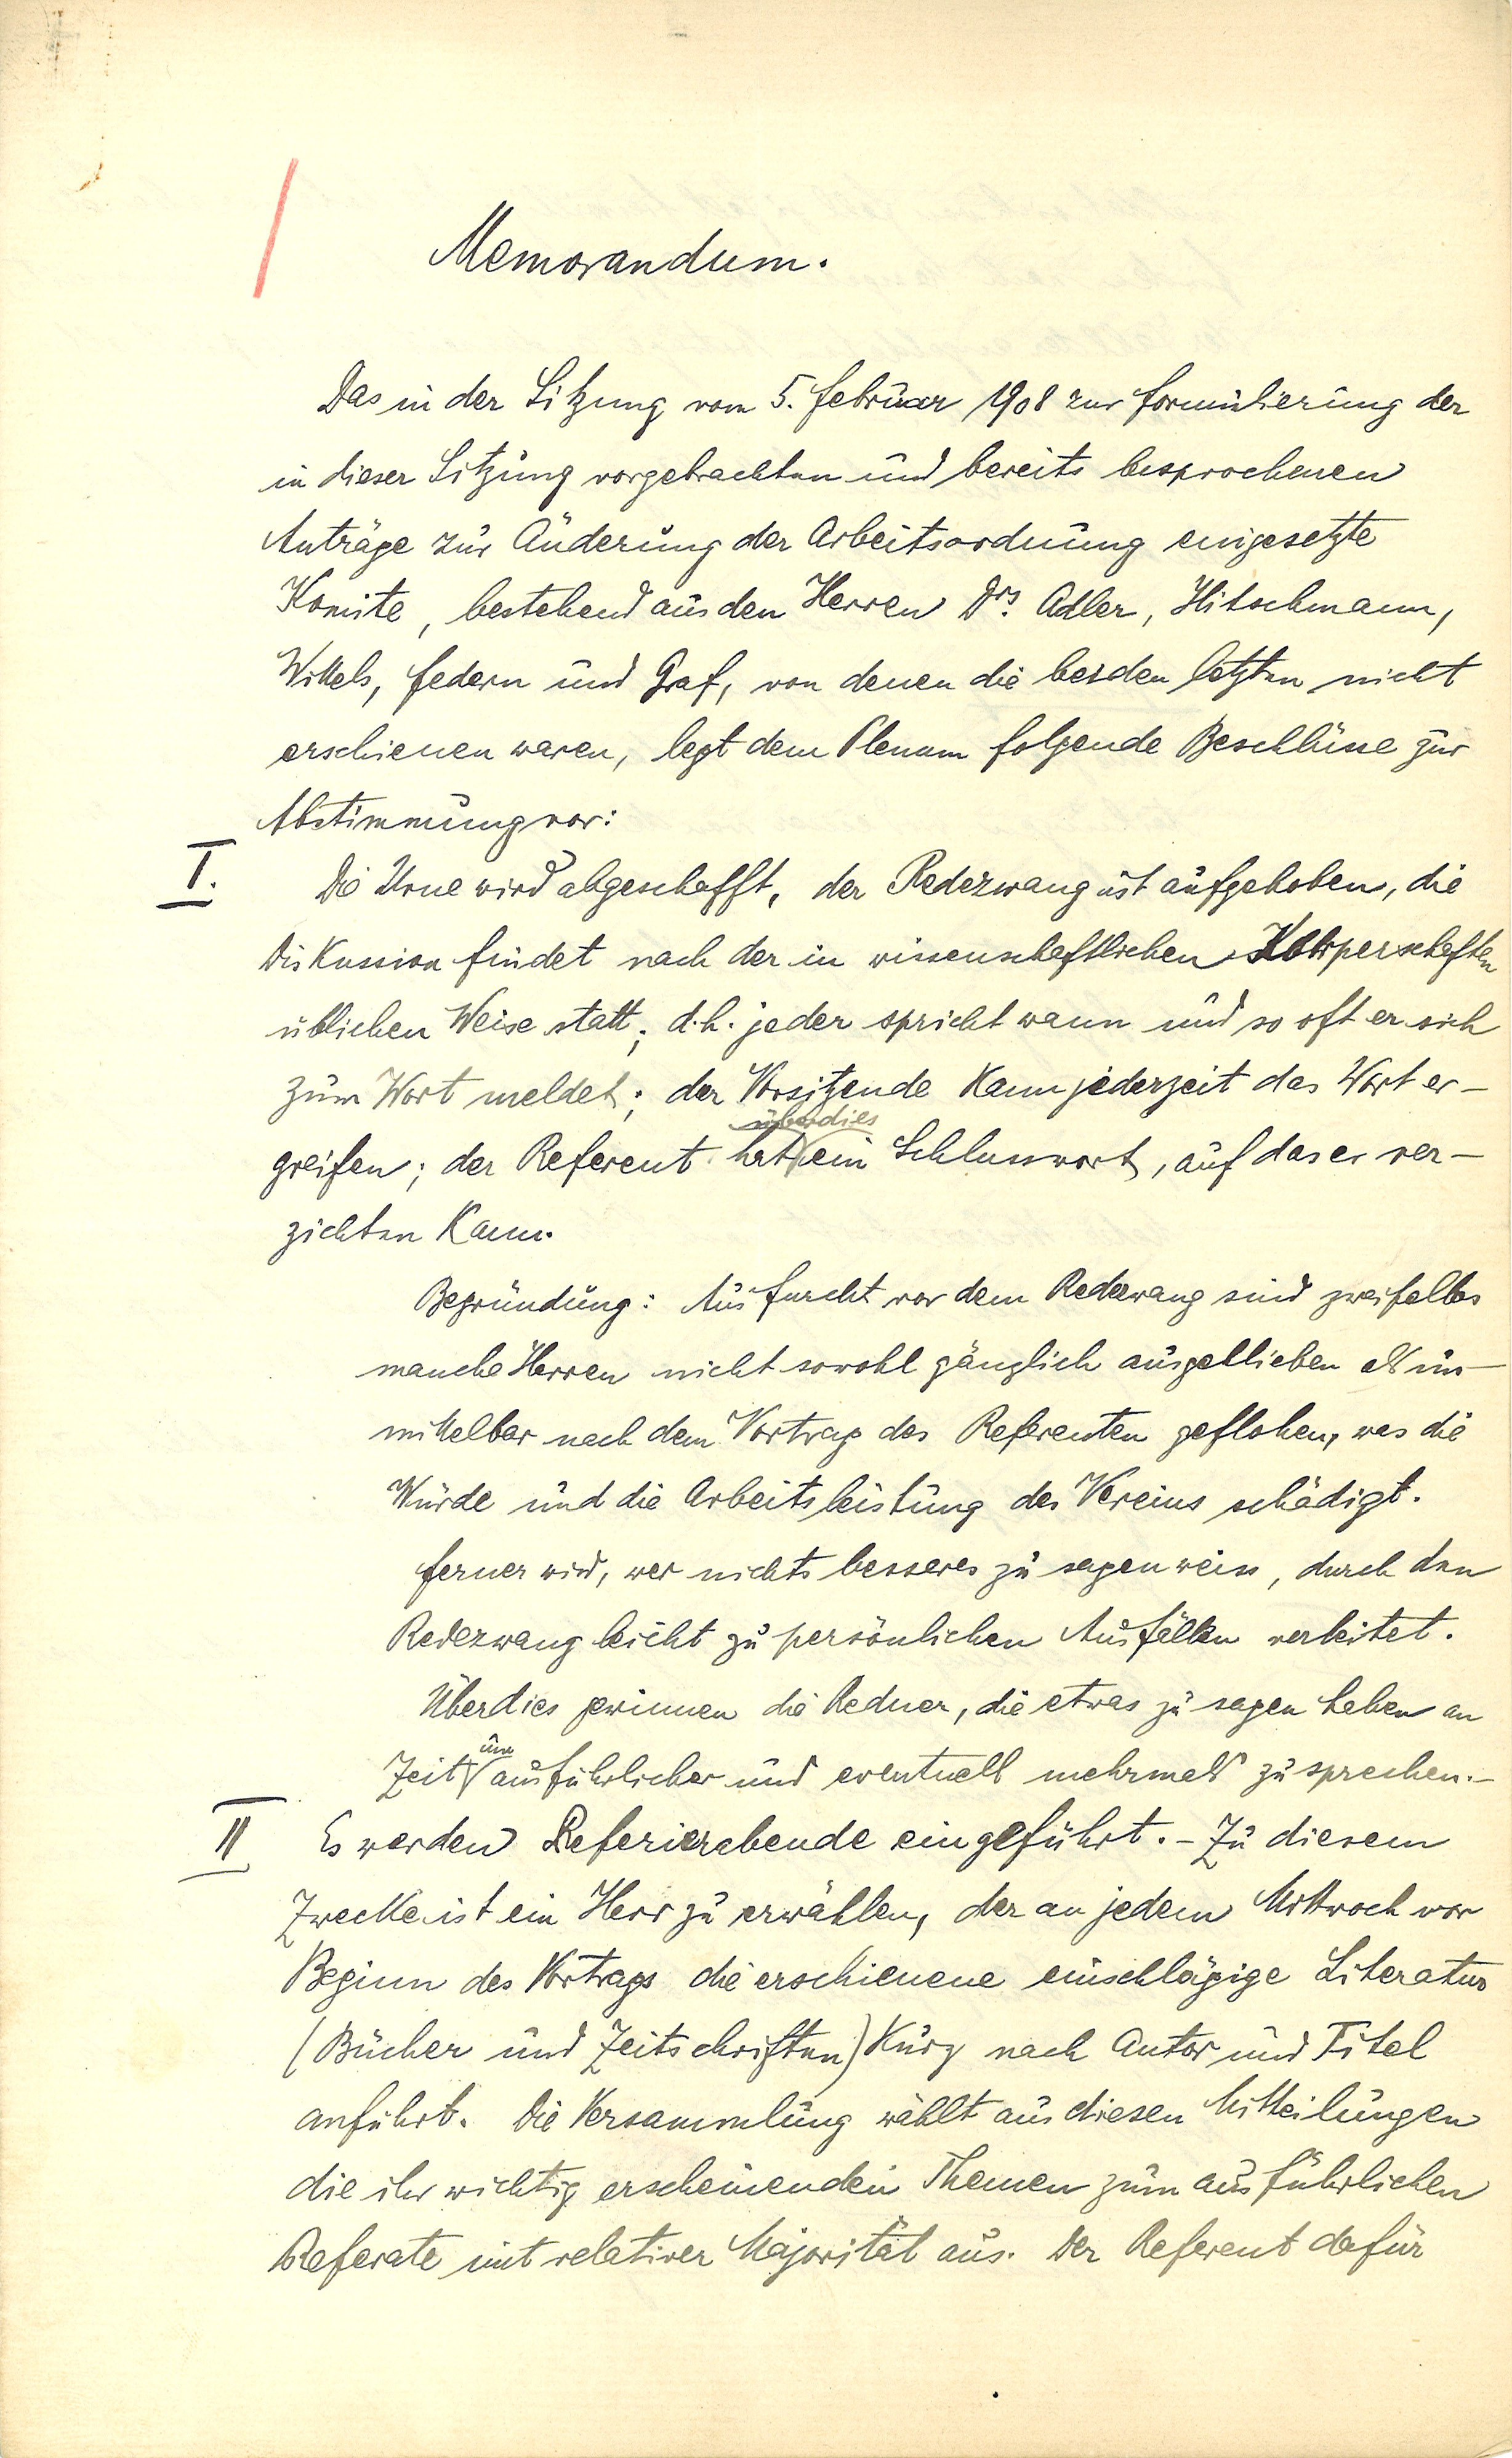 Memorandum.
Das in der Sitzung vom 5. Februar 1908 zur Formulierung der
in dieser Sitzung vorgebrachten und bereits besprochenen
Anträge zur Änderung der Arbeitsordnung eingesetzte
Komite, bestehend aus den Herren Drs. Adler, Hitschmann,
Wittels, Federn und Graf, von denen die beiden letzten nicht
erschienen waren, legt dem Plenum folgende Beschlüsse zur
Abstimmung vor:
I. Die Urne wird abgeschafft, der Redezwang ist aufgehoben, die
Diskussion findet nach der in wissenschaftlichen Körperschaften
üblichen Weise statt; d.h. jeder spricht wann und so oft er sich
zum Wort meldet; der Vorsitzende kann jederzeit das Wort er-
überdies
greifen; der Referent hat ein Schlusswort, auf das er ver-
zichten kann.
Begründung: Aus Furcht vor dem Redezwang sind zweifellos
manche Herren nicht sowohl gänzlich ausgeblieben als un-
mittelbar nach dem Vortrag des Referenten geflohen, was die
Würde und die Arbeitsleistung des Vereins schädigt.
Ferner wird, wer nichts besseres zu sagen weiss, durch den
Redezwang leicht zu persönlichen Ausfällen verleitet.
Überdies gewinnen die Redner, die etwas zu sagen haben an
um
Zeit ausführlicher und eventuell mehrmals zu sprechen.-
II Es werden Referierabende eingeführt. - Zu diesem
Zwecke ist ein Herr zu erwählen, der an jedem Mittwoch vor
Beginn des Vortrags die erschienene einschlägige Literatur
(Bücher und Zeitschriften) kurz nach Autor und Titel
anführt. Die Versammlung wählt aus diesen Mitteilungen
die ihr wichtig erscheinenden Themen zum ausführlichen
Referate mit relativer Majorität aus. Der Referent dafür